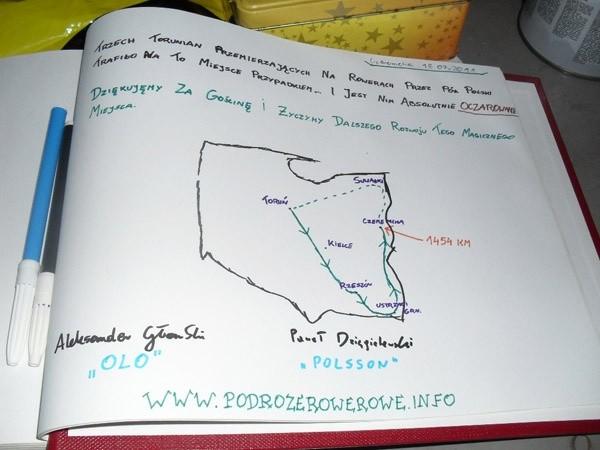 Trzech Torunian Przemierzających Na Rowerach Przez Pół Polski
Trafiło Na To Miejsce Przypadkiem... I Jest Nim Absolutnie Oczarowane
Dziękujemy Za Gościnę i Życzymy Dalszego Rozwoju Tego Magicznego
Miejsca.
Suwałki
Toruń
Czeremcha
1454 KM
Kielce
Rzeszów
Ustrzyki
Aleksander
Paweł
"OLO"
"POLSSON"
WWW.PODROZEROWEROWE.INFO